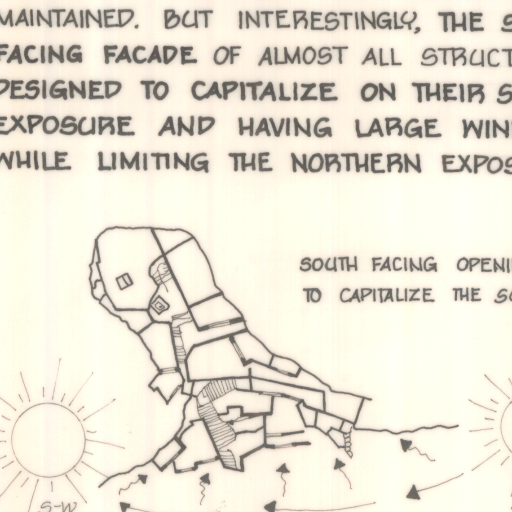 MAINTAINED. BUT INTERESTINGLY, THE
FACING FACADE OF ALMOST ALL
DESIGNED TO CAPITALIZE ON THEIR
EXPOSURE AND HAVING LARGE
WHILE LIMITING THE NORTHERN
SOUTH FACING
TO CAPITALIZE THE
S-W